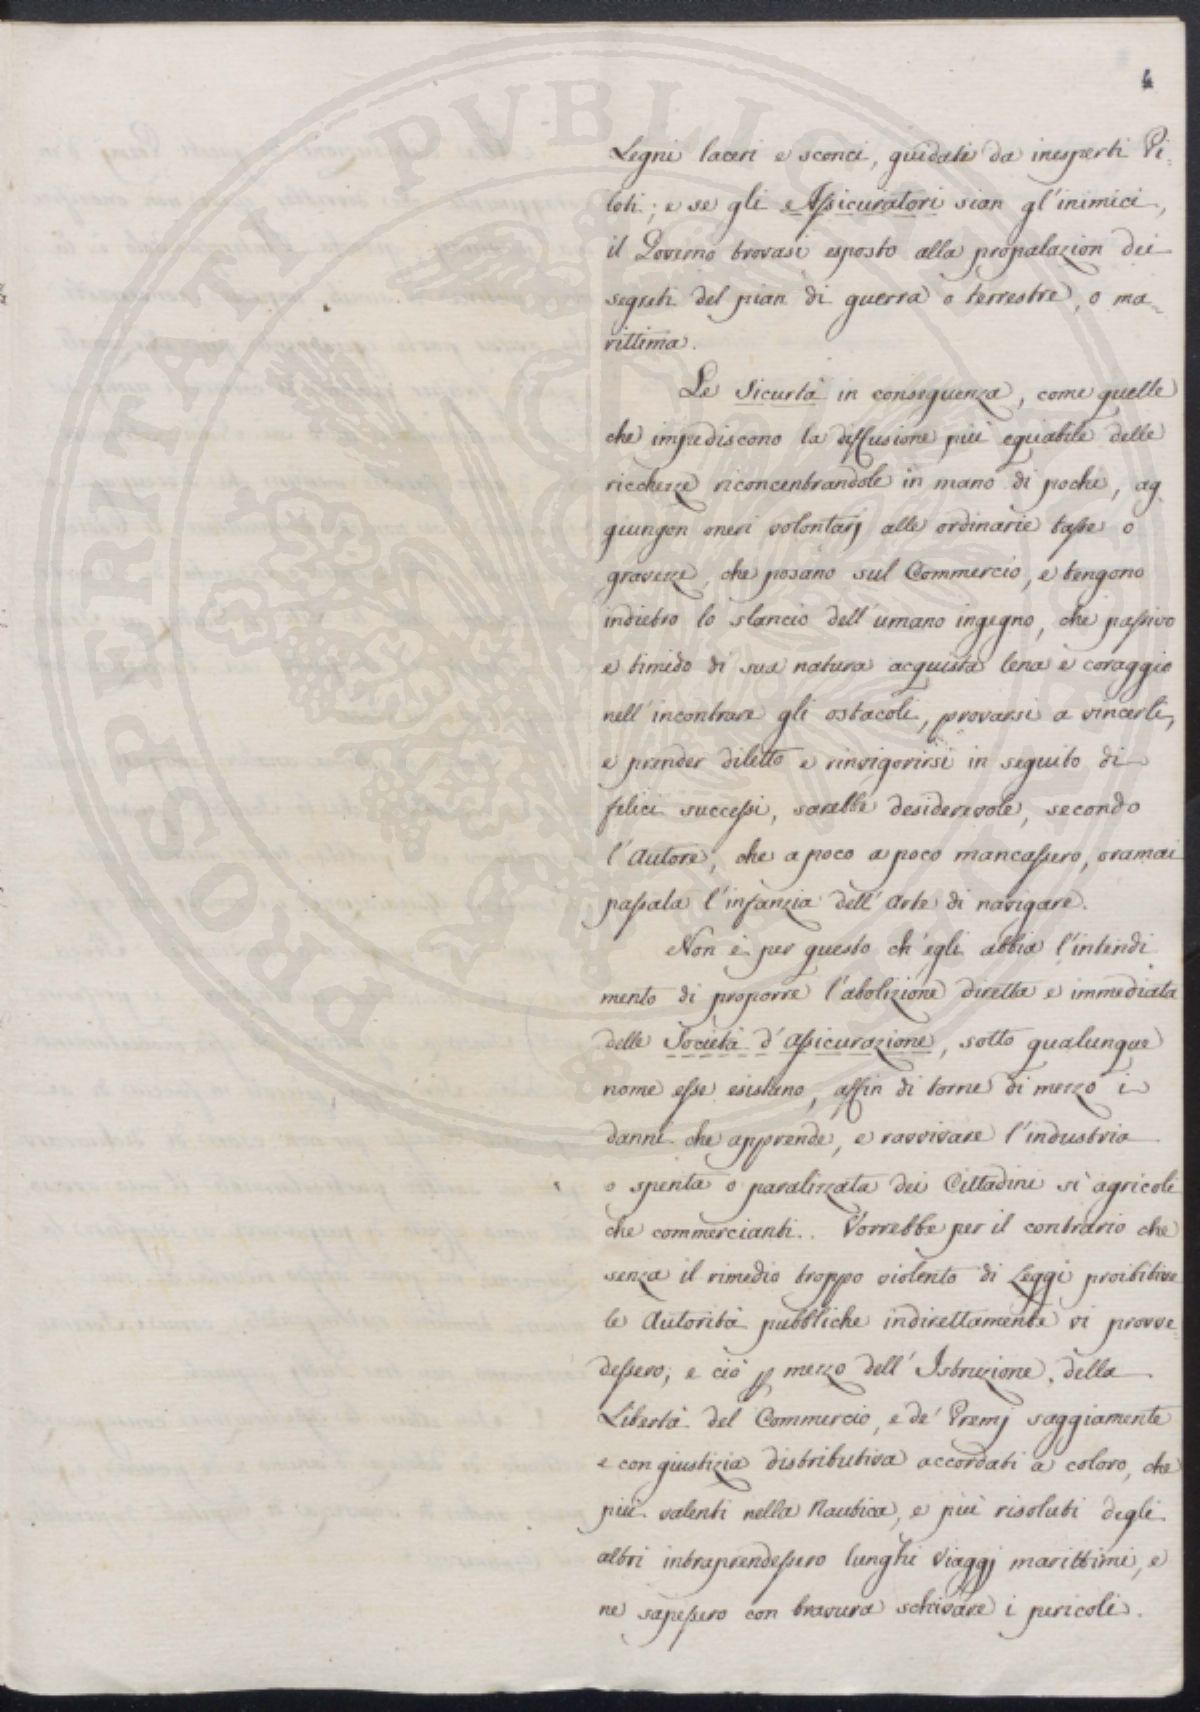 4
Legni laceri e sconci, guidati da inesperti Pi=
loti; e se gli Assicuratori sian gl'inimici,
il Governo trovasi esposto alla propalazion dei
segreti del pian di guerra o terrestre, o ma=
rittima.
Le Sicurtà in conseguenza, come quelle
che impediscono la diffusione più equabile delle
ricchezze riconcentrandole in mano di pochi, ag
giungon oneri volontarj alle ordinarie tasse o
gravezze, che posano sul Commercio, e tengono
indietro lo slancio dell'umano ingegno, che passivo
e timido di sua natura acquista lena e coraggio
nell'incontrare gli ostacoli, provarsi a vincerli,
e prender diletto e rinvigorirsi in seguito di
felici successi, sarebbe desiderevole, secondo
l'Autore, che a poco a poco mancassero, oramai
passata l'infanzia dell'Arte di navigare.
Non è per questo ch'egli abbia l'intendi
mento di proporre l'abolizione diretta e immediata
delle Società d'Assicurazione, sotto qualunque
nome esse esistano, affin di torne di mezzo i
danni che apprende, e ravvivare l'industria
o spenta o paralizzata dei Cittadini sì agricoli
che commercianti. Vorrebbe per il contrario che
senza il rimedio troppo violento di Leggi proibitive
le Autorità pubbliche indirettamente vi provve=
dessero; e ciò p mezzo dell'Istruzione, della
Libertà del Commercio, e de' Premj saggiamente
e con giustizia distributiva accordati a coloro, che
più valenti nella Nautica, e più risoluti degli
altri intraprendessero lunghi Viaggj marittimi, e
ne sapessero con bravura schivare i pericoli.
PROSPERITATI PUBLICAE